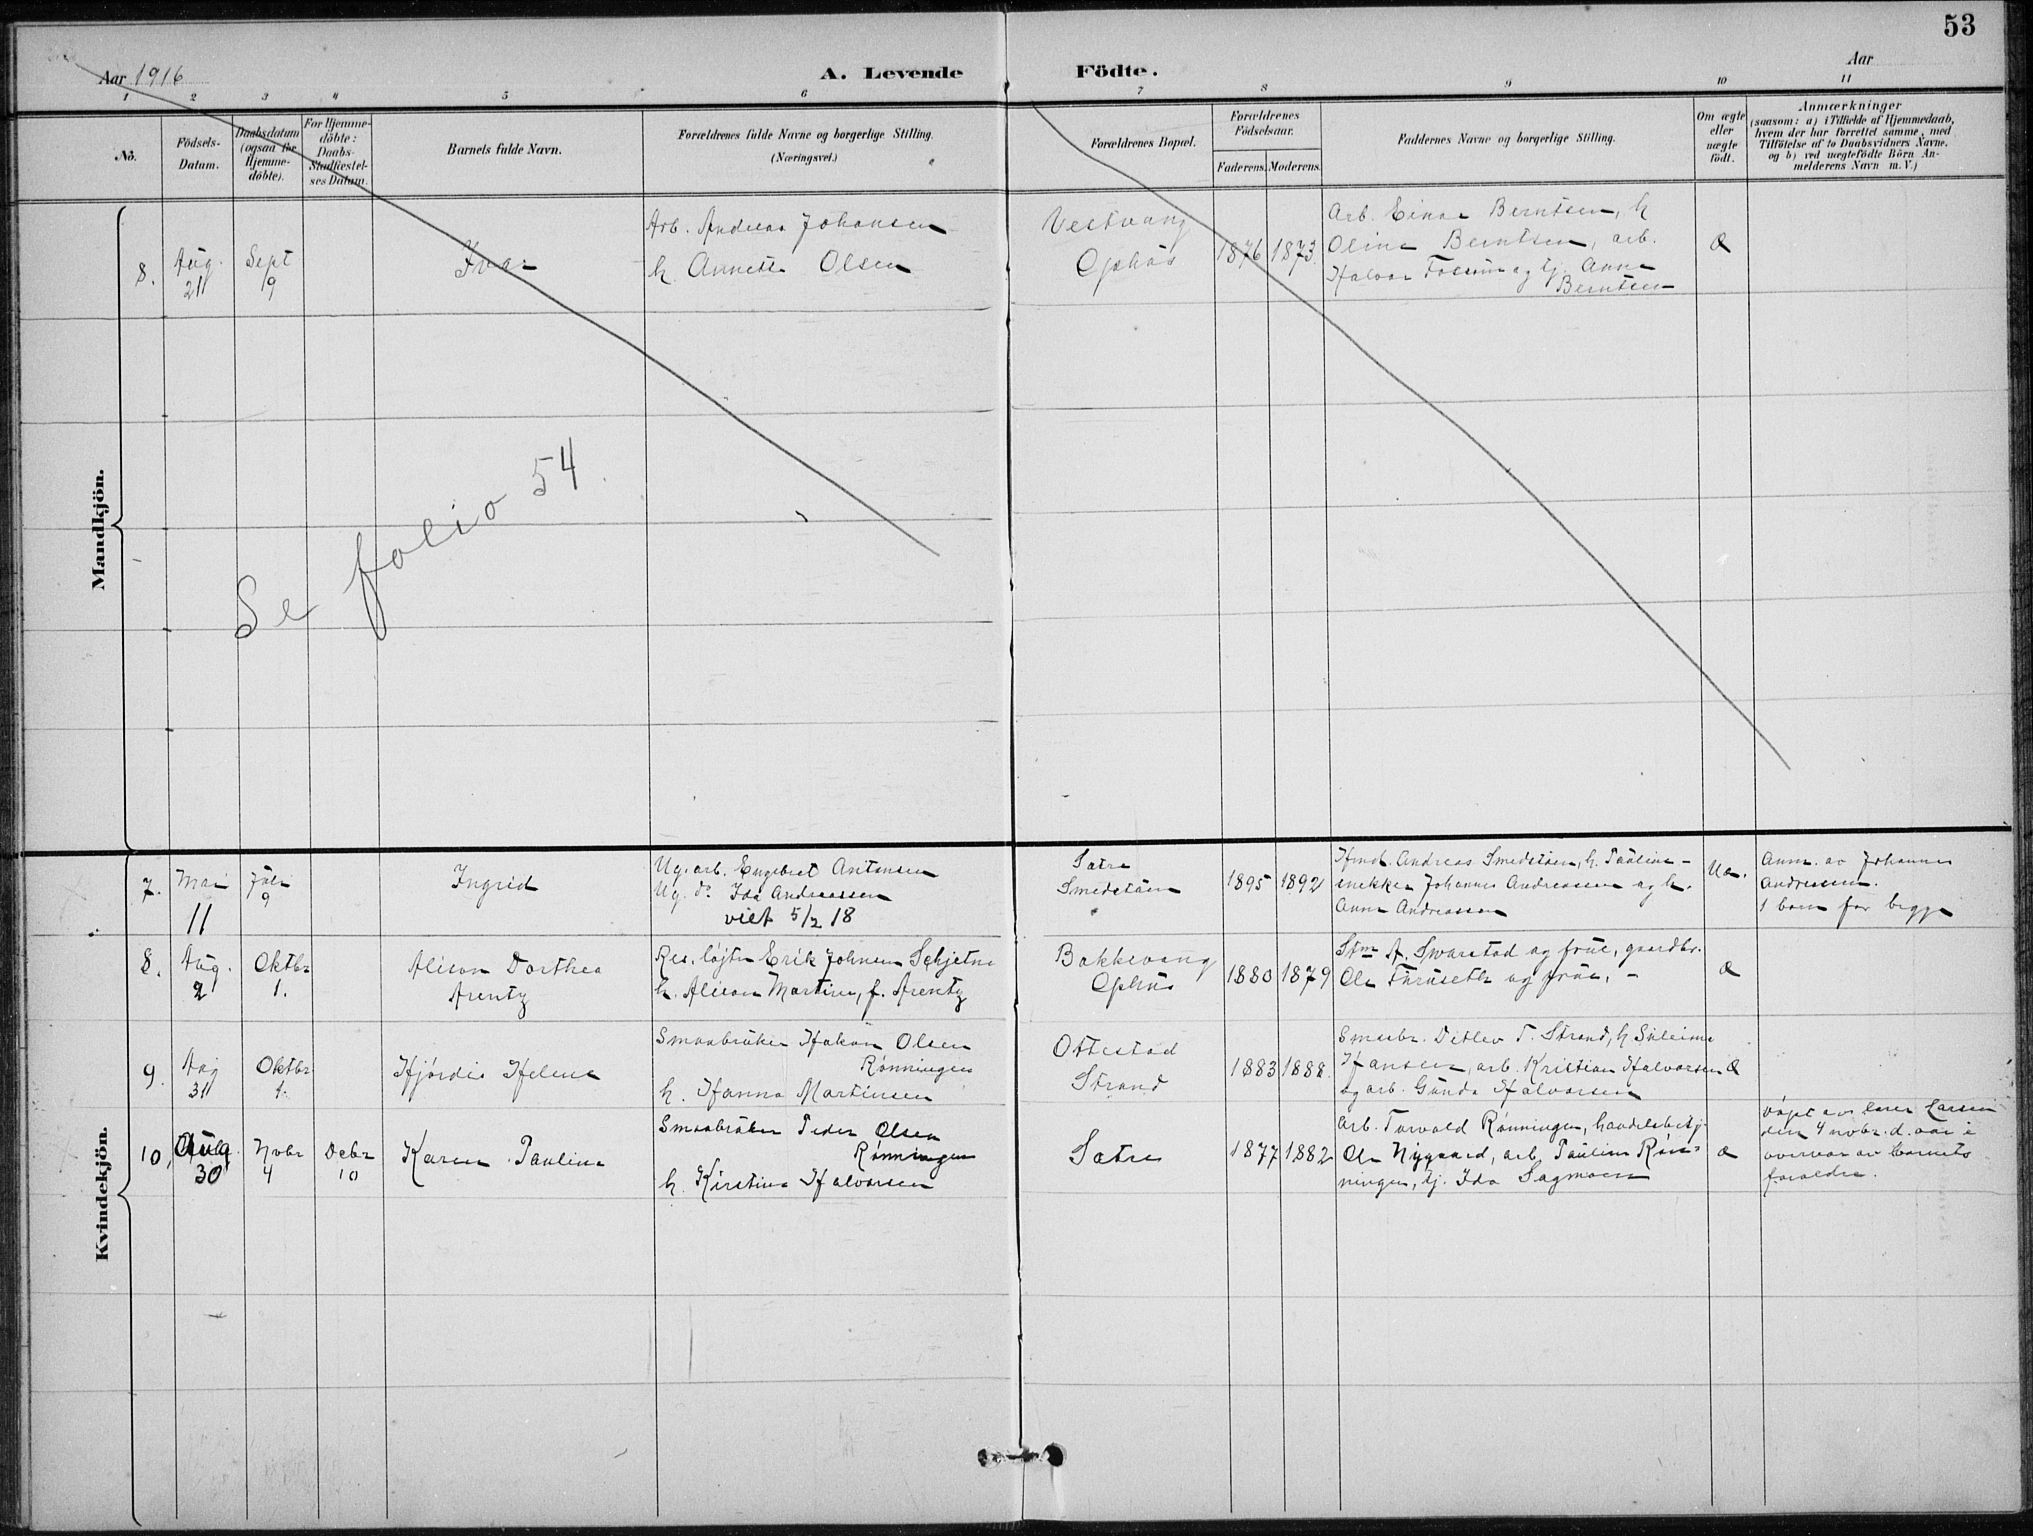 53
Aar 1916
A. Levende Födte.
Aar
1 2 3 4 5 6 7 8 9 10 11
No.
Födsels-
Datum.
Daabsdatum
(ogsaa for
Hjemme-
döbte).
For Hjemme-
döbte:
Daabs-
Stadfæstel-
ses Datum.
Barnets fulde Navn.
Forældrenes fulde Navne og borgerlige Stilling.
(Næringsvei.)
Forældrenes Bopæl.
Forældrenes
Födselsaar.
Faderens.
Moderens.
Faddernes Navne og borgerlige Stilling.
Om ægte
eller
uægte
födt.
Anmærkninger
(saasom: a) i Tilfælde af Hjemmedaab,
hvem der har forrettet samme, med
Tilföielse af to Daabsvidners Navne.
og b) ved uægtefödte Börn An-
melderens Navn m. V.)
Mandkjön.
8.
Aug.
21
Sept
19
Ivar
Arb. Andreas Johansen
h. Annette Olsen
Vestvang
Ophus
1876
1873
Arb. Einar Berntsen, h
Oline Berntsen, arb.
Halvor Fossum og tj. Anne
Berntsen
Æ
Se folio 54.
Kvindekjön.
7.
Mai
11
Juli
9
Ingrid
Ug. arb. Engebret Antonsen
Ug. do Ida Andreassen
viet 5/2 18
Sætre
Smedstuen
1895
1892
Hmd. Andreas Smedstuen, h. Pauline -
snekker Johannes Andreassen og h.
Anne Andreassen
Uæ.
Anm. av Johannes
Andreassen.
1 barn for begge
8.
Aug.
2
Oktbr
1.
Alison Dorthea
Arentz
Res. løjtn Erik Johnsen Schjetne
h. Alison Martine, f. Arentz
Bakkevang
Ophus
1880
1879
Stm A. Swarstad og frue, gaardbr.
Ole Furuseth og frue. -
Æ
9.
Aug
31
Oktbr
1.
Hjørdis Helene
Smaabruker Hakon Olsen
Rønningen
h. Hanna Martinsen
Ottestad
Strand
1883
1888.
Smaabr. Ditlev T. Strand, h
Hansen, arb. Kristian Halvorsen
og arb. Gunda Halvorsen
Æ
10.
Aug.
30
Novbr
4
Debr
10
Karen Pauline
Smaabruker Peder Olsen
Rønningen
h. Kirstine Halvorsen
Sætre
1877
1882
Arb. Torvald Rønningen, handelsbetj.
Ole Nygaard, arb. Pauline Røn-
ningen, tj. Ida Sagmoen
Æ
Døpt av lærer Larsen
den 4 novbr. d. aar i
overvær av barnets
forældre.